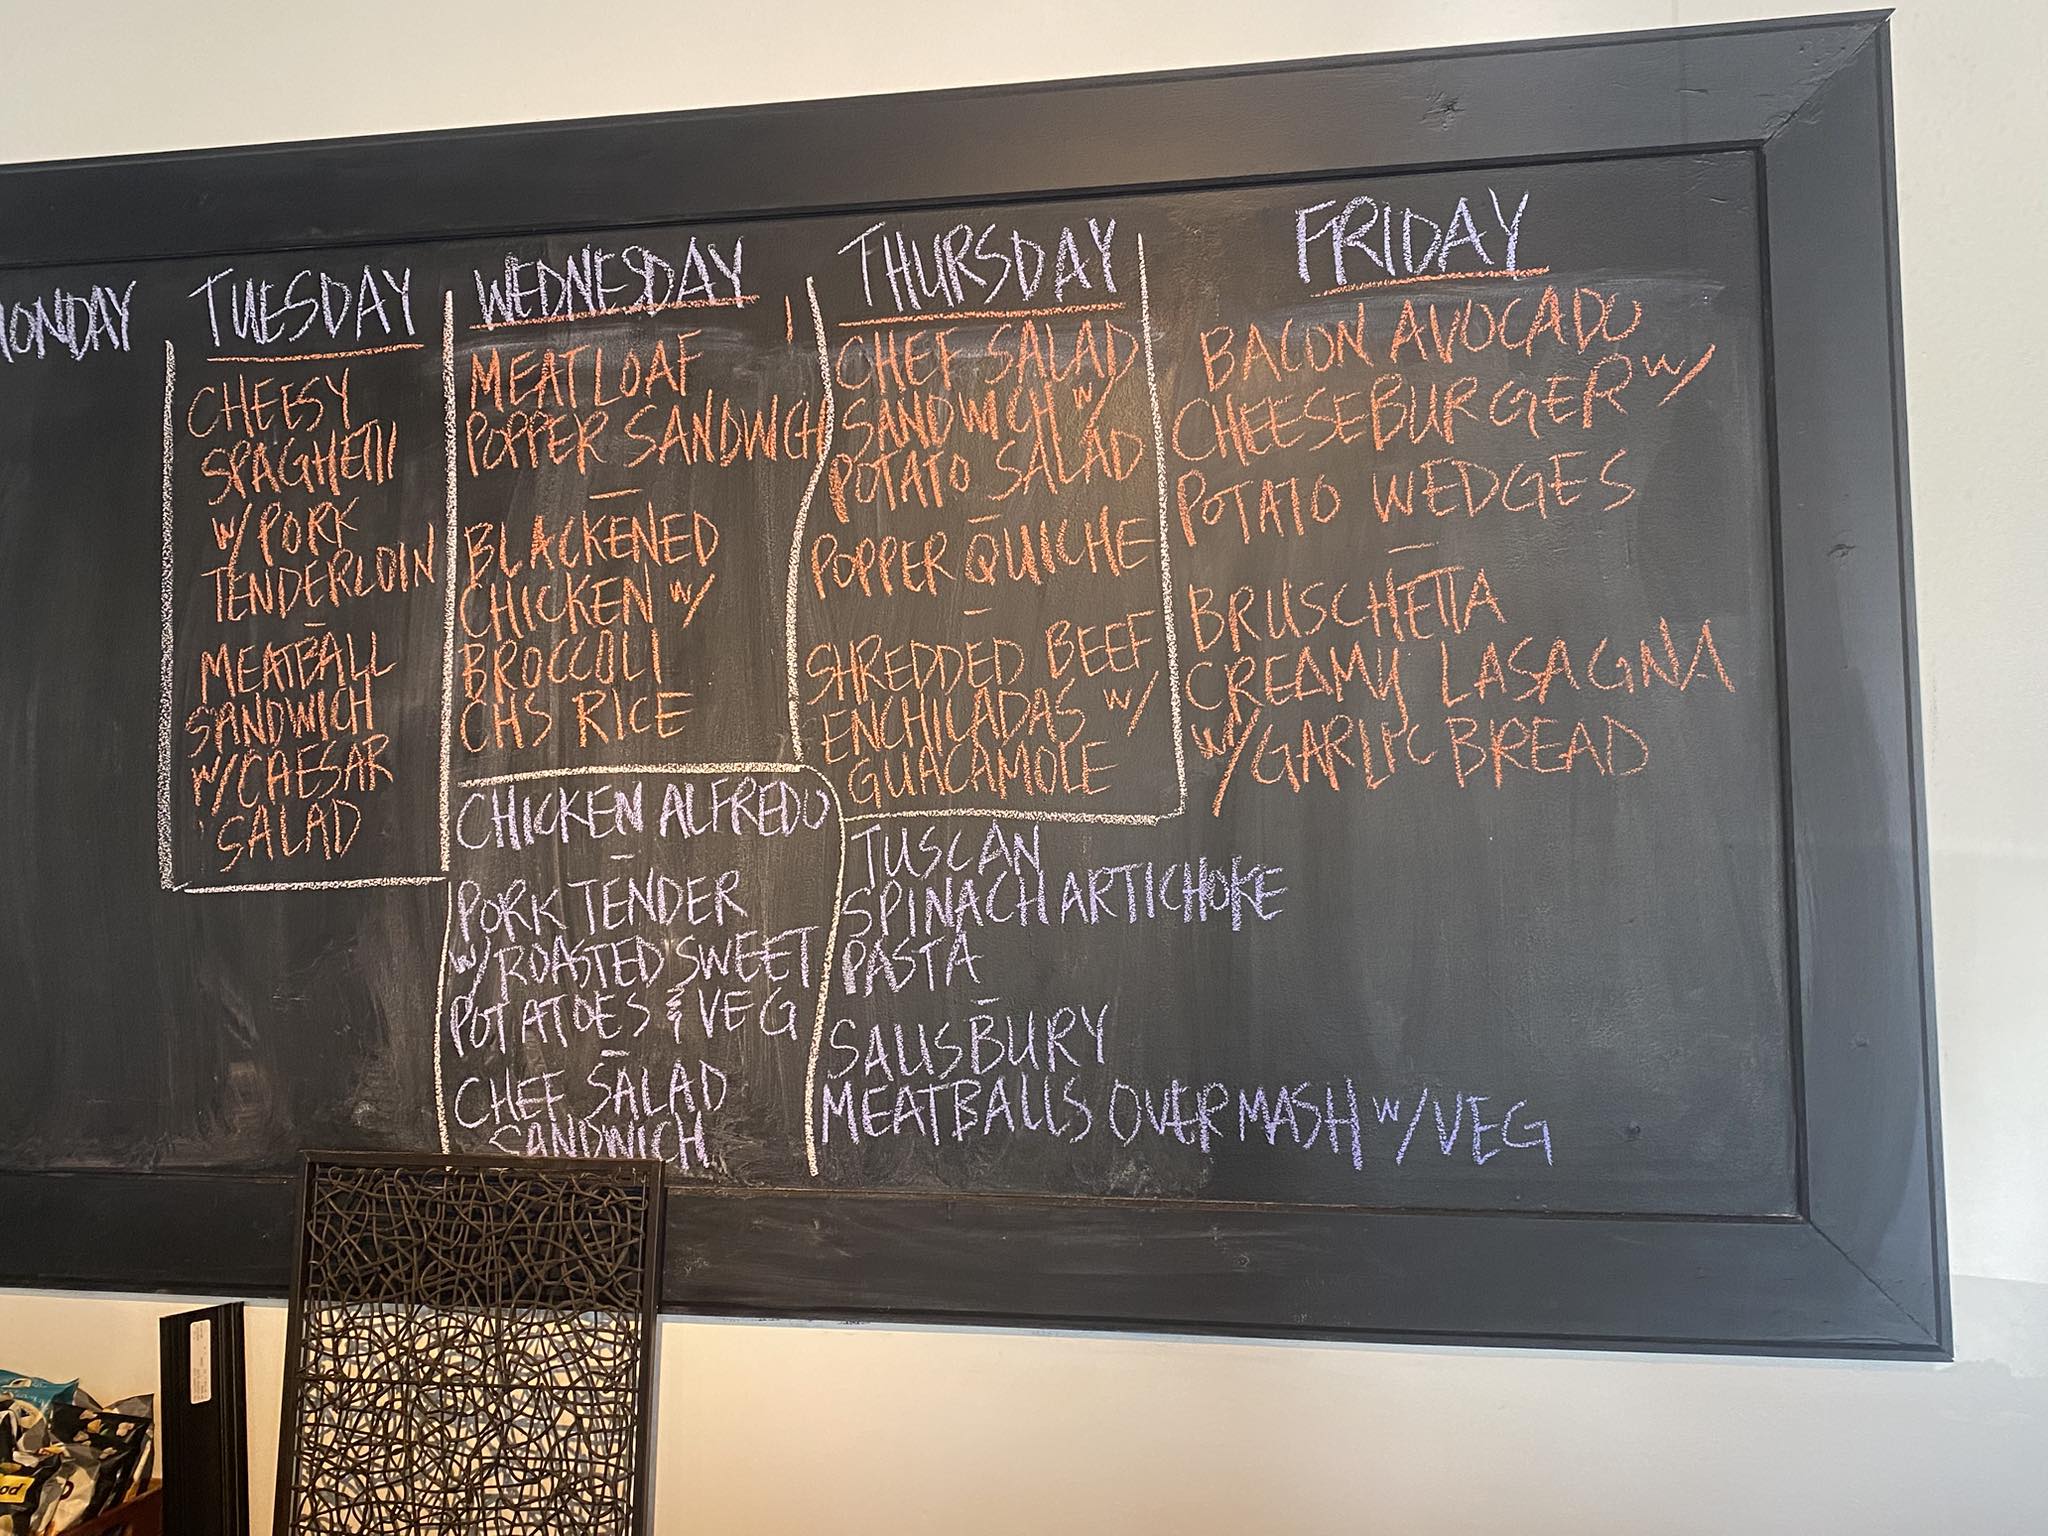 MONDAY
TUESDAY
CHEESY
SPAGHETTI
W/ PORK
TENDERLOIN
-
MEATBALL
SANDWICH
W/ CAESAR
SALAD
WEDNESDAY
MEATLOAF
POPPER SANDWICH
-
BLACKENED
CHICKEN W/
BROCCOLI
CHS RICE
CHICKEN ALFREDO
-
PORK TENDER
W/ ROASTED SWEET
POTATOES & VEG
-
CHEF SALAD
SANDWICH
THURSDAY
CHEF SALAD
SANDWICH W/
POTATO SALAD
-
POPPER QUICHE
-
SHREDDED BEEF
ENCHILADAS W/
GUACAMOLE
TUSCAN
SPINACH ARTICHOKE
PASTA
-
SALISBURY
MEATBALLS OVER MASH W/ VEG
FRIDAY
BACON AVOCADO
CHEESEBURGER W/
POTATO WEDGES
-
BRUSCHETTA
CREAMY LASAGNA
W/ GARLIC BREAD